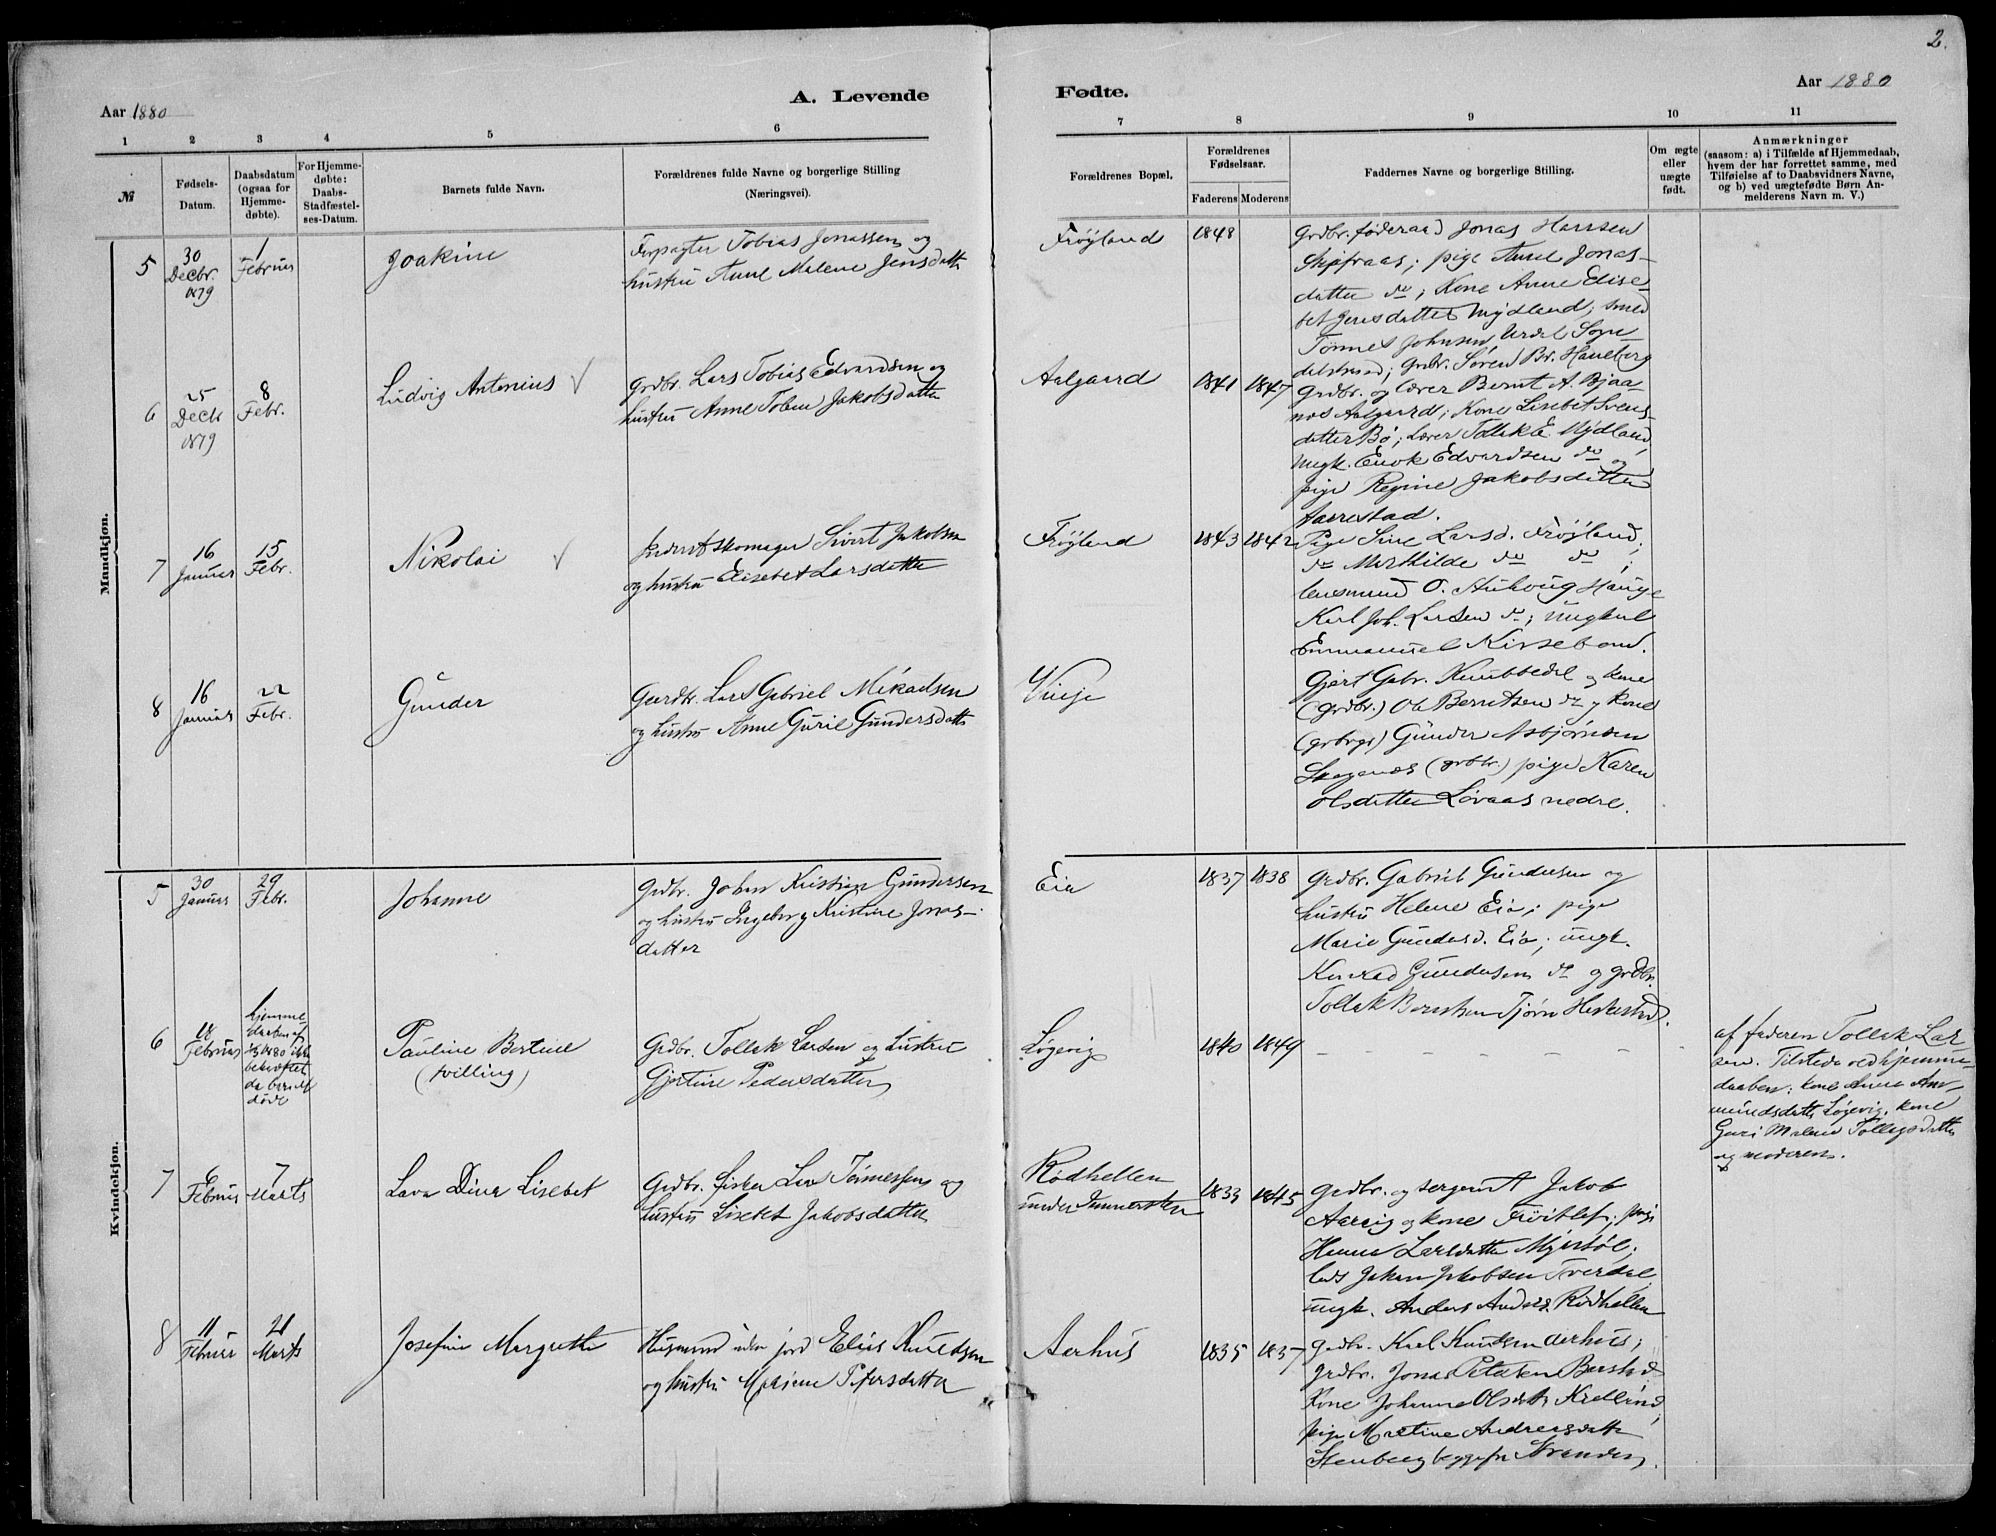 2.
Aar 1880
A. Levende
Fødte.
Aar 1880
1 2 3 4 5 6 7 8 9 10 11
№
Fødsels-Datum.
Daabsdatum (ogsaa for Hjemme-døbte).
For Hjemme-døbte: Daabs-Stadfæstel-ses-Datum.
Barnets fulde Navn.
Forældrenes fulde Navne og borgerlige Stilling (Næringsvei).
Forældrenes Bopæl.
Forældrenes Fødselsaar.
Faderens Moderens
Faddernes Navne og borgerlige Stilling.
Om ægte eller uægte født.
Anmærkninger
(saasom: a) i Tilfælde af Hjemmedaab,
hvem der har forrettet samme, med
Tilføielse af to Daabsvidners Navne,
og b) ved uægtefødte Børn An-
melderens Navn m. V.)
Mandkjøn.
5
30 Decbr. 1879
1 Februar
Joakine
Forpagter Tobias Jonassen og
hustru Anne Malene Jensdatter
Frøyland
1848
Grdbr. føderaad Jonas Hansen
pige Anne Jonas-
datter do; Kone Anne Elise-
bet Jensdatter Mydland; smed
Tønnes Johnsen, Sogn-
Grdbr. Søren Br. Haneberg
6
25 Decbr 1879
8 Febr.
Ludvig Antonius √
Grdbr. Lars Tobias Edvardsen og
hustru Anne Tobine Jakobsdatter
Aalgaard
1841 1847
Grdbr. og Lærer Bernt A. Bjaa-
nes Aalgaard; Kone Lisebet Svens-
datter Bø; Lærer Tollak E. Mydland,
ungk. Enok Edvardsen do og
pige Regine Jakobsdatter
Aarrestad.
7
16 Januar
15 Febr.
Nikolai √
Inderst skomager Sivert Jakobsen
og hustru Elisebet Larsdatter
Frøyland
1843 1842
Pige Sine Larsd. Frøyland;
do Mathilde do do;
lensmand O. Hauge
Karl Joh. Larsen do; ungkarl
Emmanuel Kirsebom.
8
16 Januar
22 Febr.
Gunder
Gaardbr. Lars Gabriel Mikaelsen
og hustru Anne Guril Gundersdatter
Vinje
Gjert Gabr. Knubbedal og kone
(grdbr.) Ole Berntsen do og kone
Gunder Asbjørnsen
Skogenæs (grdbr.) pige Karen
Olsdatter Løvaas nedre.
Kvindekjøn.
5
30 Januar
29 Febr.
Johanne
Grdbr. Johan Kristian Gundersen
og hustru Ingeborg Kristine Jonas-
datter
Eia
1837 1838
Grdbr. Gabriel Gundersen og
hustru Helene Eia; pige
Marie Gundersd. Eia; ungk.
Konrad Gundersen do og grdbr.
Tollak Berntsen Tjørn Heskestad.
6
18 Februar
hjemme
daaben af
1880 ikke
bekræftet
da barnet
døde
Pauline Bertine
(tvilling)
Grdbr. Tollak Larsen og hustru
Gjertine Pedersdatter
Løgevig
1840 1849
– – – – – – –
af faderen Tollak Lar-
sen. Tilstede ved hjemme-
daaben: kone Anne Aa-
mundsdatter Løgevig, kone
Guri Malene Tollagsdatter
og moderen.
7
6 Februar
7 Marts
Lava Dina Lisebet
Grdbr. fisker Lars Tønnessen og
hustru Lisebet Jakobsdatter
Rødhellen
under Immerstein
1833 1845
Grdbr. og sergeant Jakob
Aarsig og kone pige
Hanna Larsdatter Mjelstøl;
Lods Johan Jakobsen Tverdal,
ungk. Anders Anders. Rødhellen
8
11 Februar
21 Marts
Josefine Margrethe
Husmand uden jord Elias Knudsen
og hustru Petersdatter
Aarhus
1835 1837
Grdbr. Karl Knutsen Aarhus;
grdbr. Jonas Petersen Barstad
Kone Johanne Olsdtr Kielland;
pige Martine Andreasdatter
Stenberg begge fra Stranden.